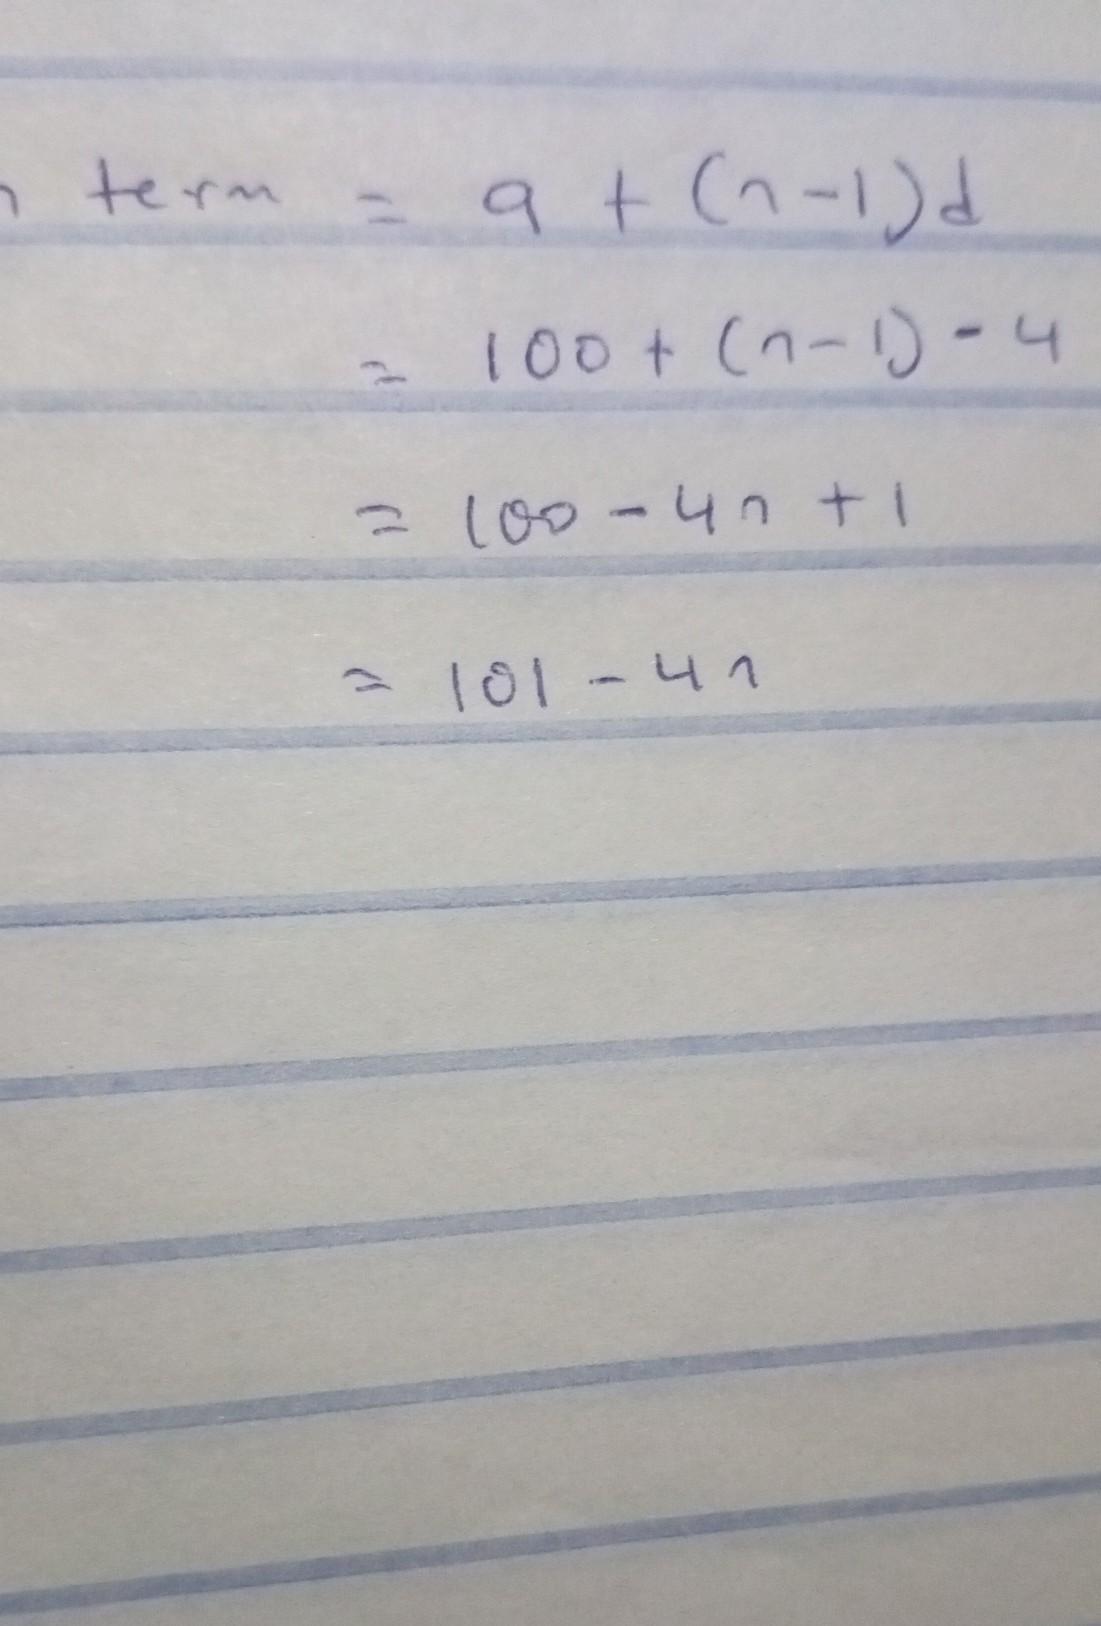 n term = a + (n-1)d
= 100 + (n-1) - 4
= 100 - 4n + 1
= 101 - 4n